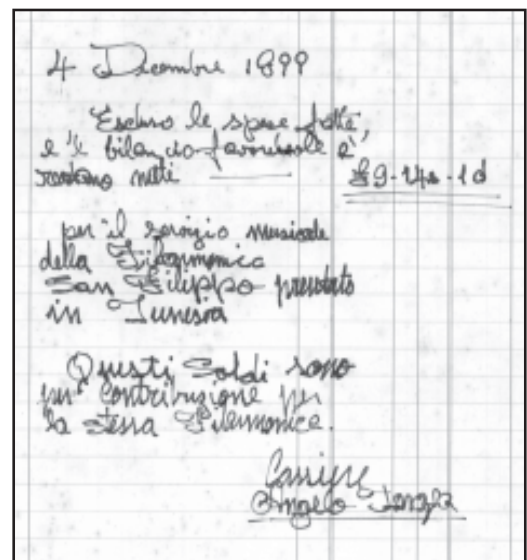 4 Dicembre 1899
Escluso le spese fatte,
e 'l bilancio favorevole è
restano netti £9-14s-1d
per il servizio musicale
della Filarmonica
San Filippo prestato
in Tunesia
Questi Soldi sono
per contribuzione per
la stessa Filarmonica.
Angelo